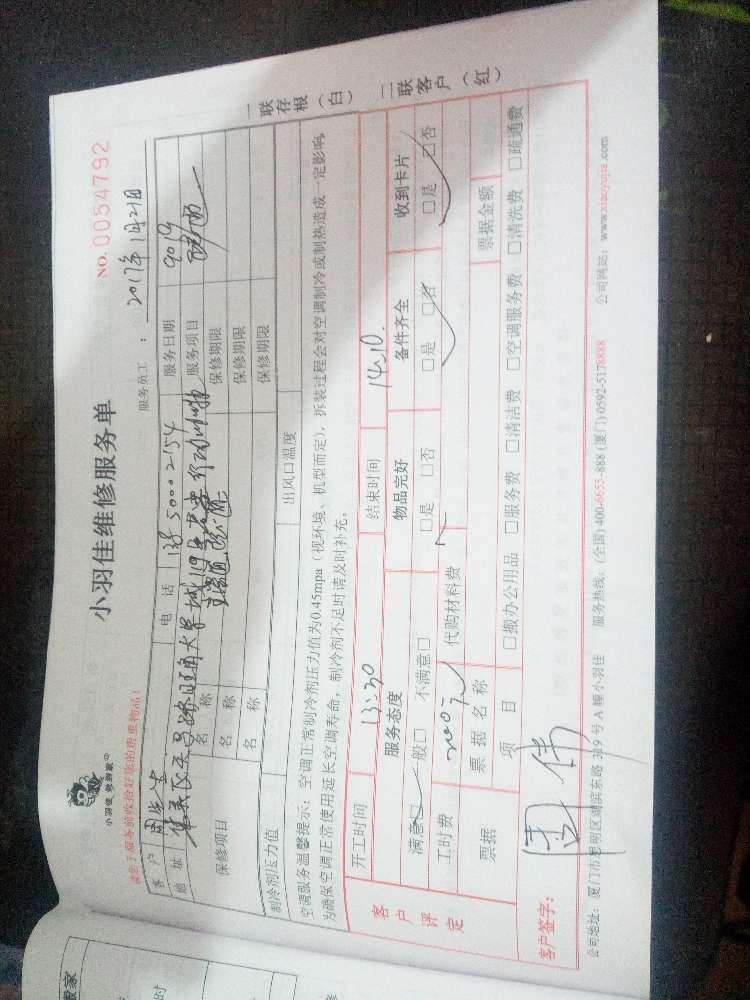 小羽佳维修服务单
NO.0054792
小羽佳 创新家
请您于服务前收拾好您的贵重物品！
服务员工：
客户 电话 138 5000 2154 服务日期 2017年1月21日
地址 服务项目 9019
保修项目 名称 保修期限
名称 保修期限
名称 保修期限
制冷剂压力值 出风口温度
空调服务温馨提示：空调正常制冷剂压力值为0.45mpa（视环境、机型而定），拆装过程会对空调制冷或制热造成一定影响，
为确保空调正常使用延长空调寿命，制冷剂不足时请及时补充。
客户评定
开工时间 13:30 结束时间 14:10.
服务态度 物品完好 备件齐全 收到卡片
满意□ 一般□ 不满意□ □是 □否 □是 □否 □是 □否
工时费 200元 代购材料费
票据 票据名称 票据金额
项目 □搬办公用品 □服务费 □清洁费 □空调服务费 □清洗费 □疏通费
客户签字：
公司地址：厦门市思明区湖滨东路319号A幢小羽佳 服务热线：(全国)400-6655-888 (厦门)0592-5178888 公司网站：www.xiaoyujia.com
一联存根（白）
二联客户（红）
搬家
时